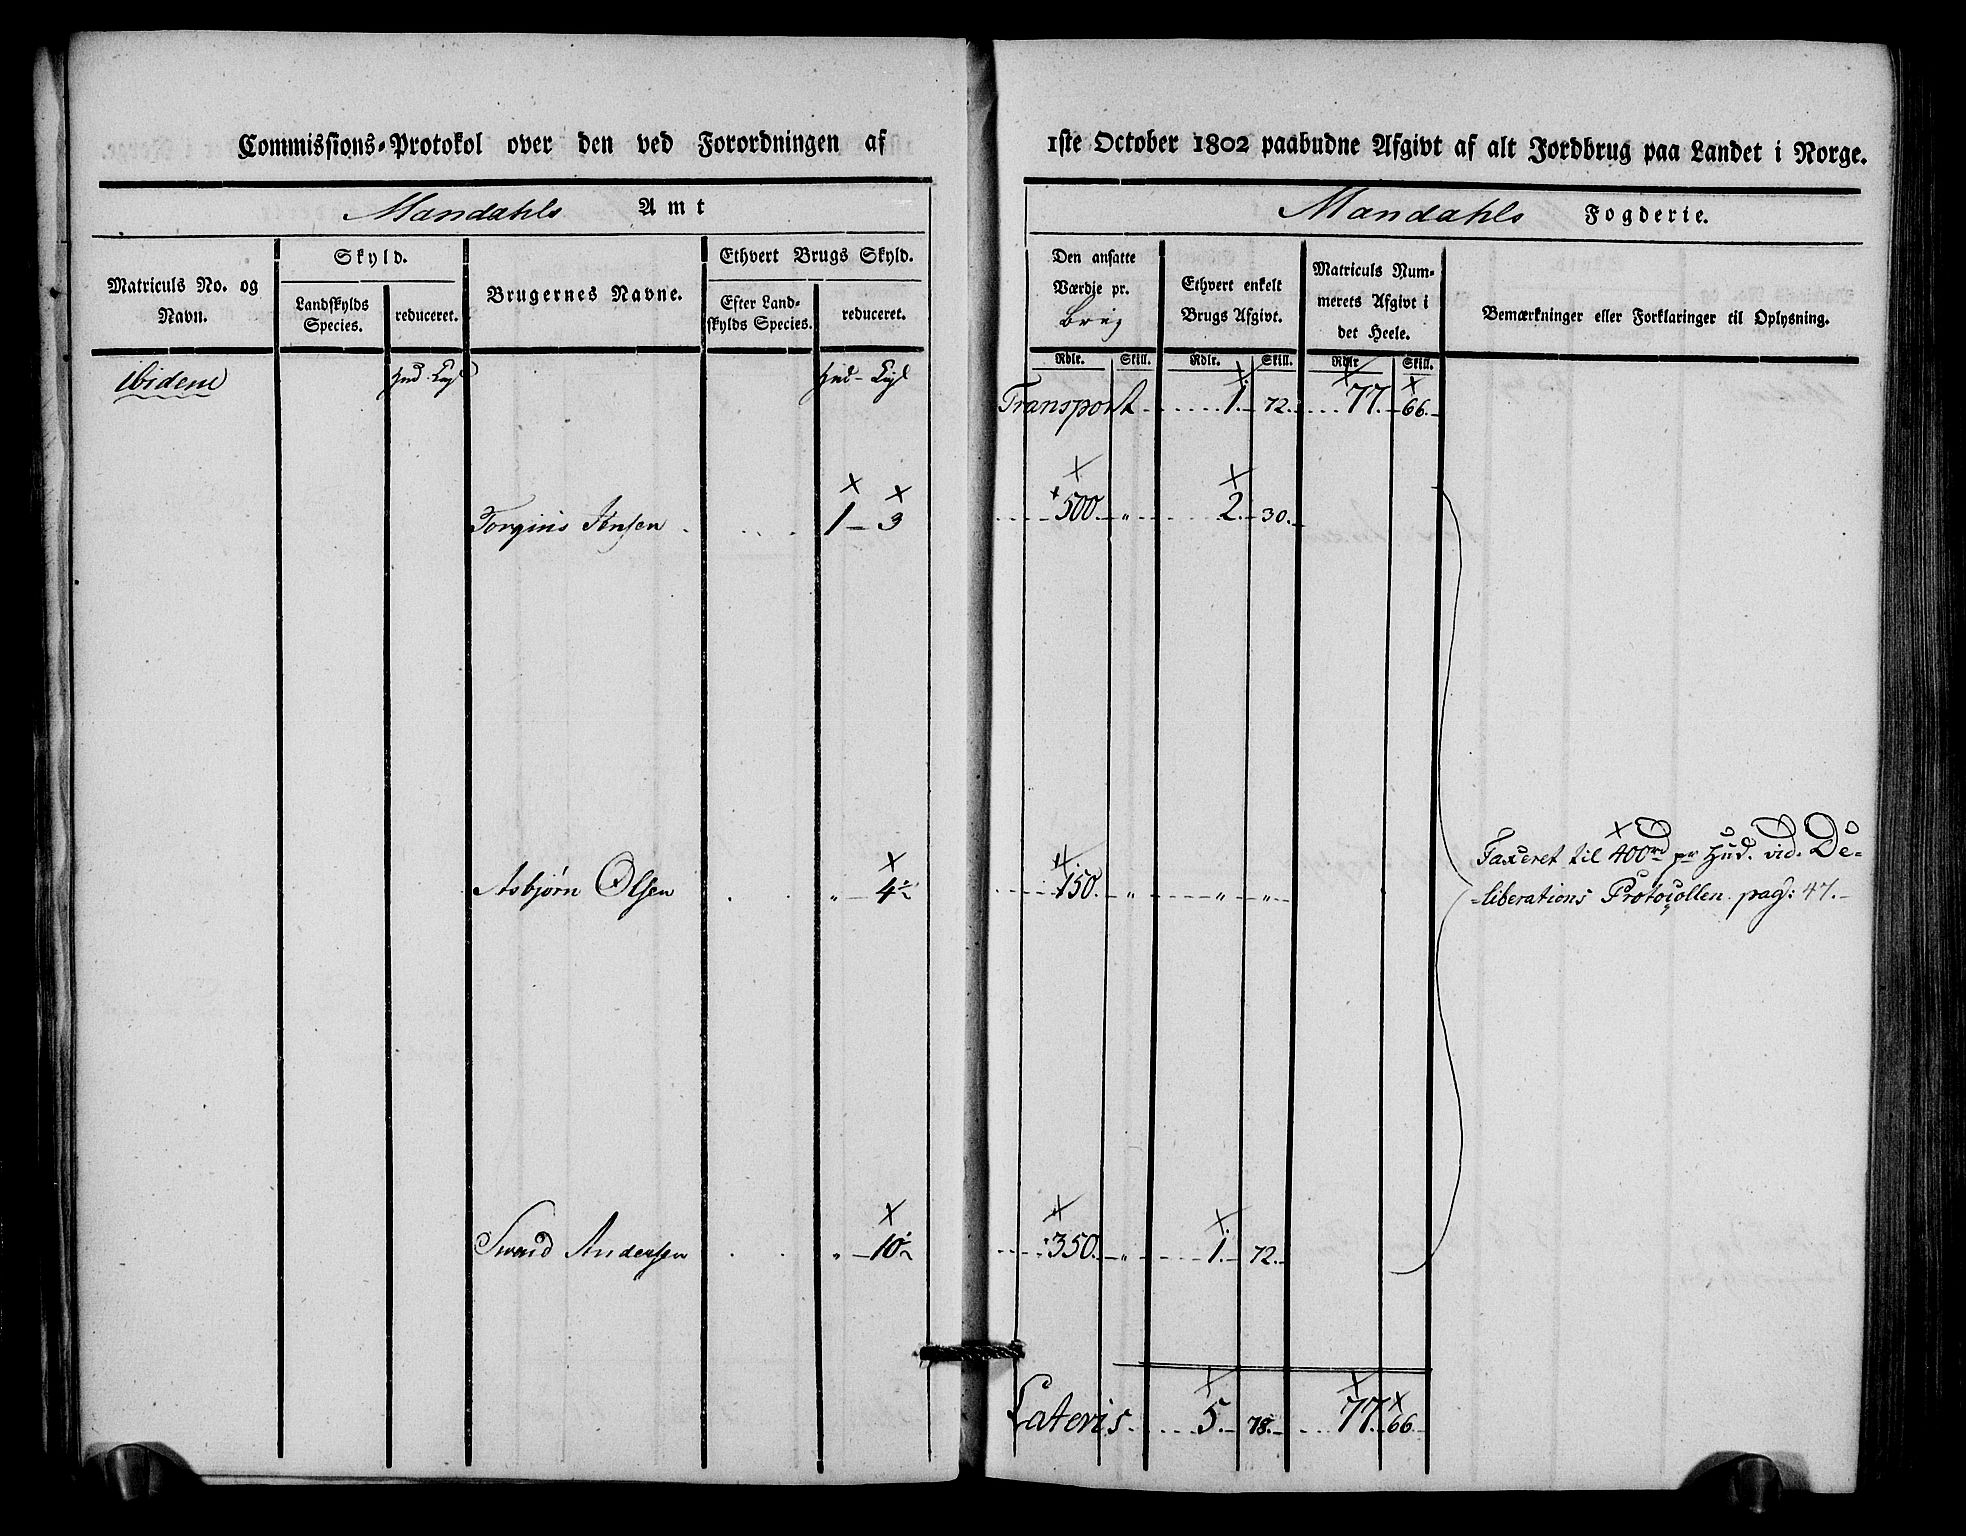 Commissions-Protokol over den ved Forordningen af 1ste October 1802 paabudne Afgivt af alt Jordbrug paa Landet i Norge.
Mandahls Amt
Mandahls Fogderie.
Matriculs No. og Navn.
Skyld.
Landskylds Species.
reduceret.
Brugernes Navne.
Ethvert Brugs Skyld.
Efter Landskylds Species.
reduceret.
Den ansatte Værdie pr.
Ethvert enkelt Brugs Afgivt.
Matriculs Nummerets Afgivt i det Heele.
Bemærkninger eller Forklaringer til Oplysning.
Rdlr. Skill. Rdlr. Skill. Rdlr Skill.
ibidem
Transport 1. 72. 77. 66.
Jensen 1 - 3 500. „ 2. 30.
Asbjørn Olsen „ 4½ 150. „ „ „
Taxeret til 400rd pr Hud. vid. De-
-liberations Protocollen pag: 47.
Svend Andersen „ 10½ 350. „ 1. 72.
Lateris 5. 78. 77. 66.